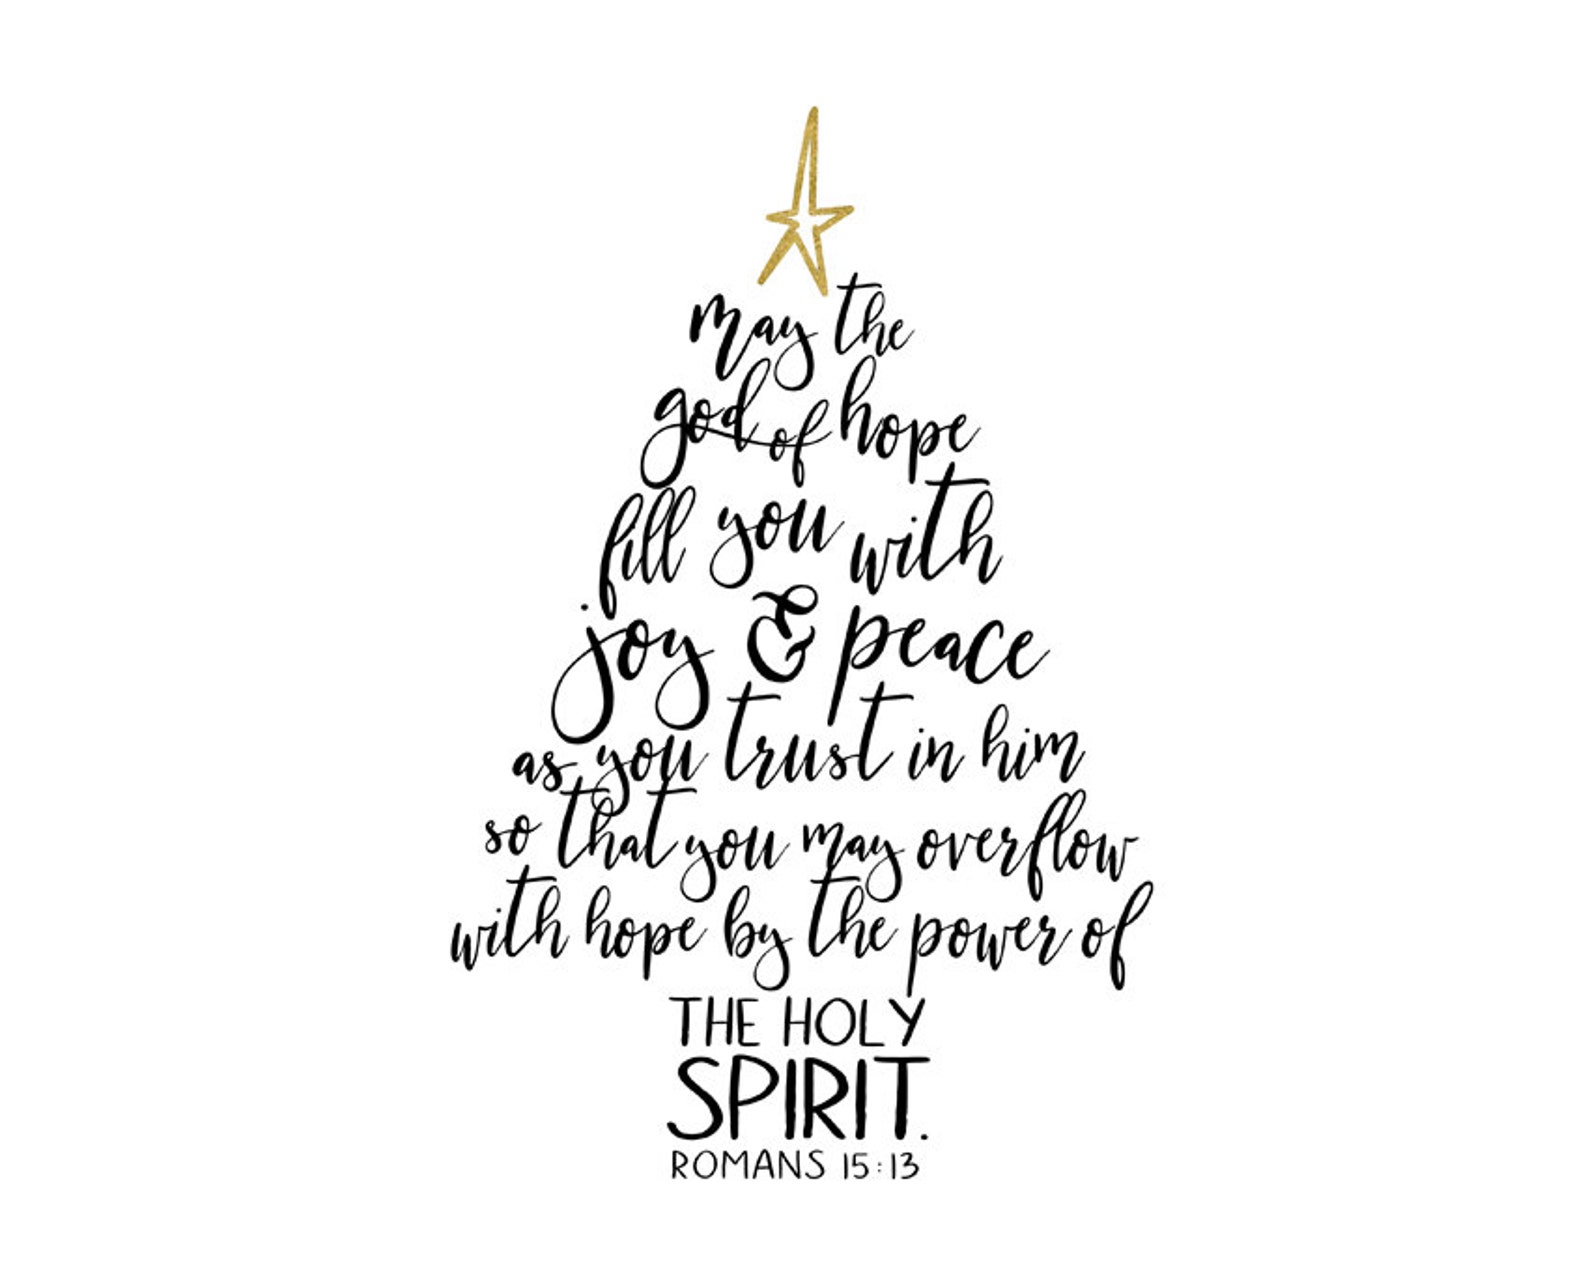 may the
god of hope
fill you with
joy & peace
as you trust in him
so that you may overflow
with hope by the power of
THE HOLY
SPIRIT.
ROMANS 15:13